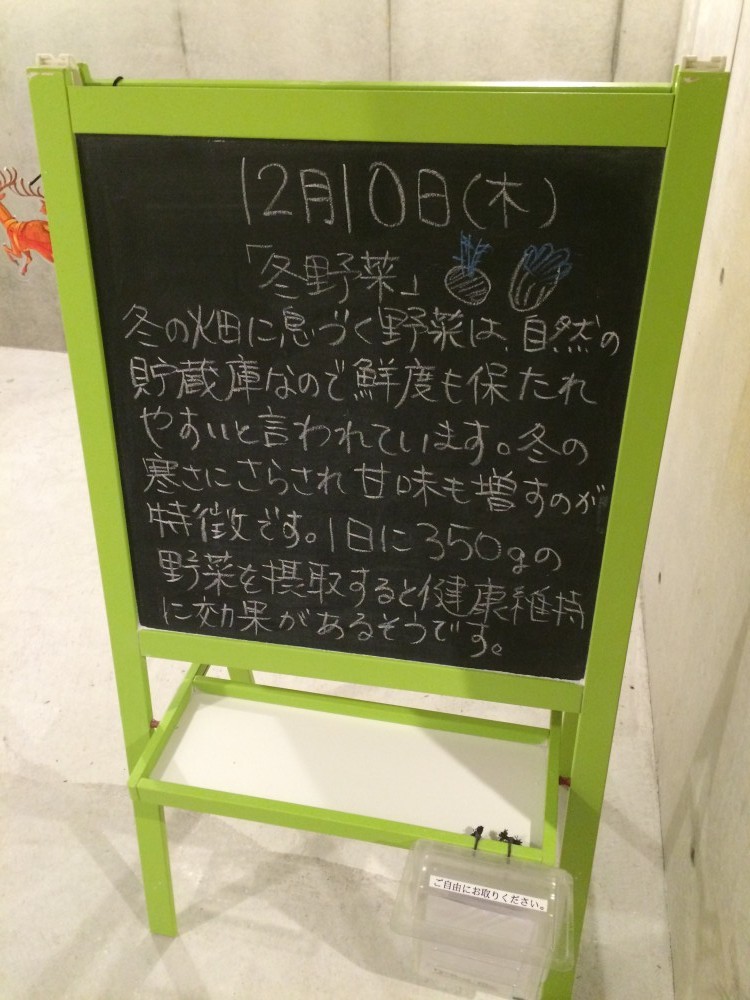 12月10日(木)
「冬野菜」
冬の畑に息づく野菜は、自然の
貯蔵庫なので鮮度も保たれ
やすいと言われています。冬の
寒さにさらされ甘味も増すのが
特徴です。1日に350gの
野菜を摂取すると健康維持
に効果があるそうです。
ご自由にお取りください。